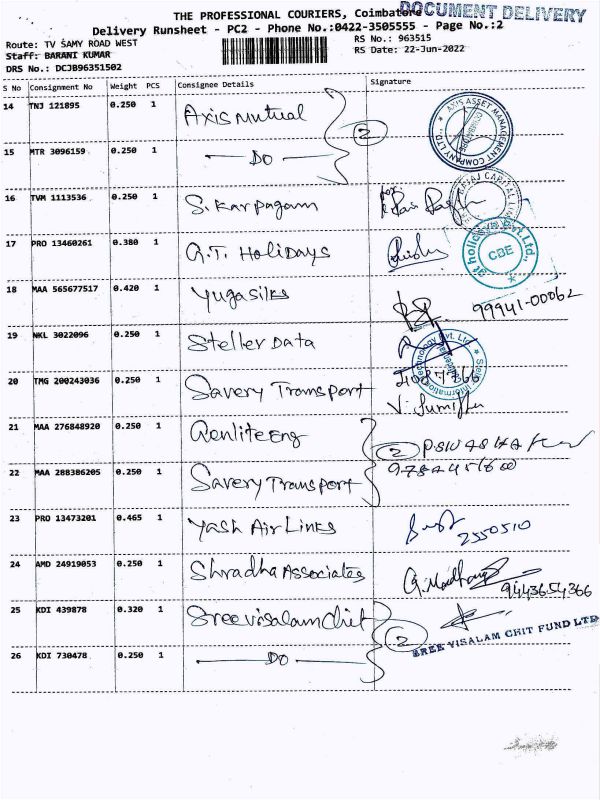 THE PROFESSIONAL COURIERS, Coimbatore
DOCUMENT DELIVERY
Delivery Runsheet - PC2 - Phone No.:0422-3505555 - Page No.:2
Route: TV SAMY ROAD WEST
RS No.: 963515
Staff: BARANI KUMAR
RS Date: 22-Jun-2022
DRS No.: DCJB96351502
S No Consignment No Weight PCS Consignee Details Signature
14 TNJ 121895 0.250 1 Axis Mutual
AXIS ASSET MANAGEMENT COMPANY LTD
2
15 MTR 3096159 0.250 1 DO
16 TVM 1113536 0.250 1 S. Karpagam
17 PRO 13460261 0.380 1 G.T. Holidays
gt holidays Pvt. Ltd.,
CBE
18 MAA 565677517 0.420 1 Yuga silks
99941-00062
19 NKL 3022096 0.250 1 Steller Data
20 TMG 200243036 0.250 1 Savery Transport
21 MAA 276848920 0.250 1 Genlite eng
2
22 MAA 288386205 0.250 1 Savery Transport
23 PRO 13473201 0.465 1 Yash Air Links
2550510
24 AMD 24919053 0.250 1 Shradha Associates
9443654366
25 KDI 439878 0.320 1 Sree visalam chit
2
SREE VISALAM CHIT FUND LTD
26 KDI 730478 0.250 1 DO